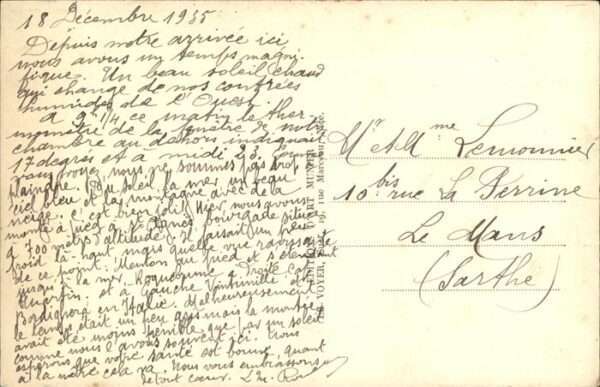 18 Décembre 1935
Depuis notre arrivée ici
nous avons un temps magni-
fique. Un beau soleil chaud
qui change de nos contrées
humides de l'Ouest
A 9h 1/4 ce matin le ther-
momètre de la fenêtre de notre
chambre au dehors indiquait
17 degrés et à midi 23. Comme
vous voyez, nous ne sommes pas trop
à plaindre. Du soleil, la mer, un beau
ciel bleu et la montagne avec de la
neige. C'est bien joli. Hier nous avons
monté à pied à Ste Agnès, bourgade située
à 700 mètres d'altitude. Il faisait un peu
froid là-haut mais quelle vue ravissante
de ce point. Menton au pied et s'étendant
jusqu'à la mer. Roquebrune à droite Cap
Martin et à gauche Vintimille et
Bordighera en Italie. Malheureusement
le temps était un peu gris mais la montée
avait été moins pénible que par un soleil
comme nous l'avons souvent ici. Nous
espérons que votre santé est bonne, quant
à la nôtre cela va. Nous vous embrassons
de tout cœur.
Mr et Mme Lemonnier
10 bis rue La Perrine
Le Mans
(Sarthe)